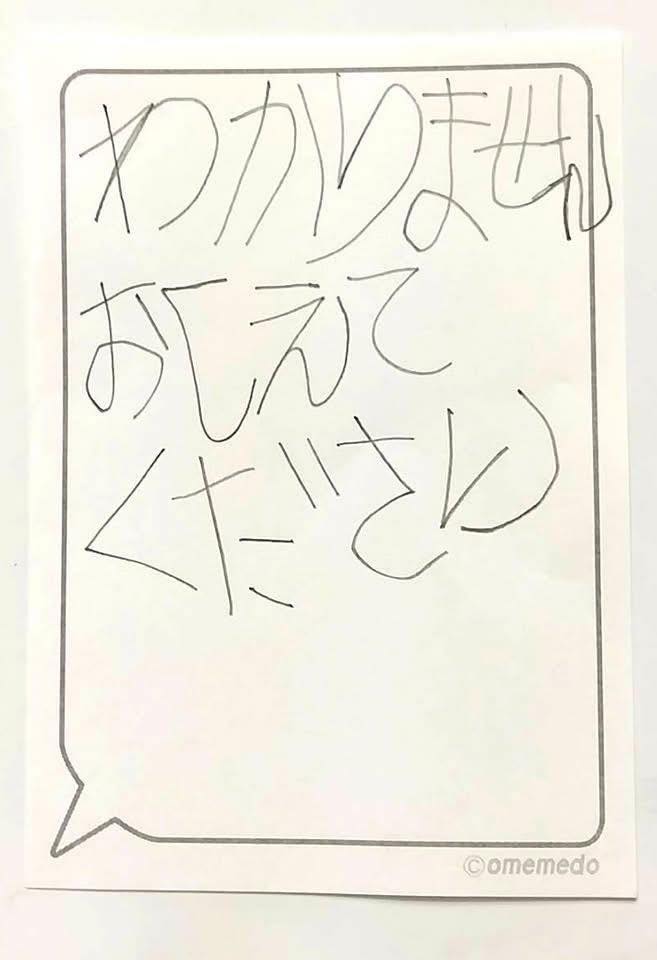 わかりません
おしえて
ください
©omemedo